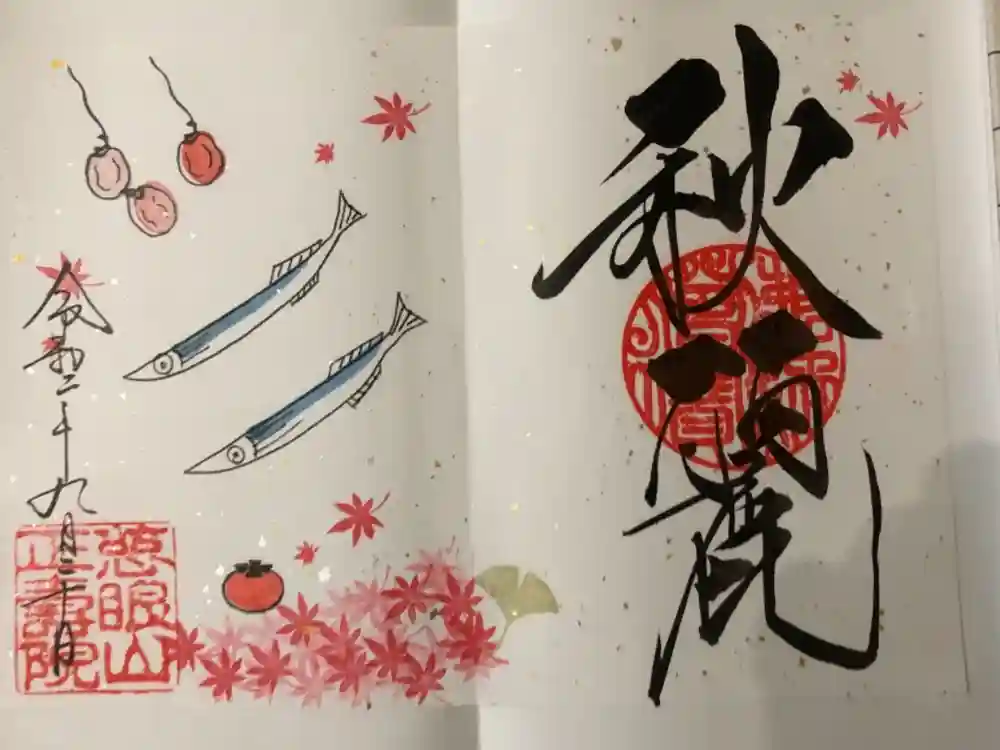 秋麗
令和二年九月三十日
慈眼山
正壽院